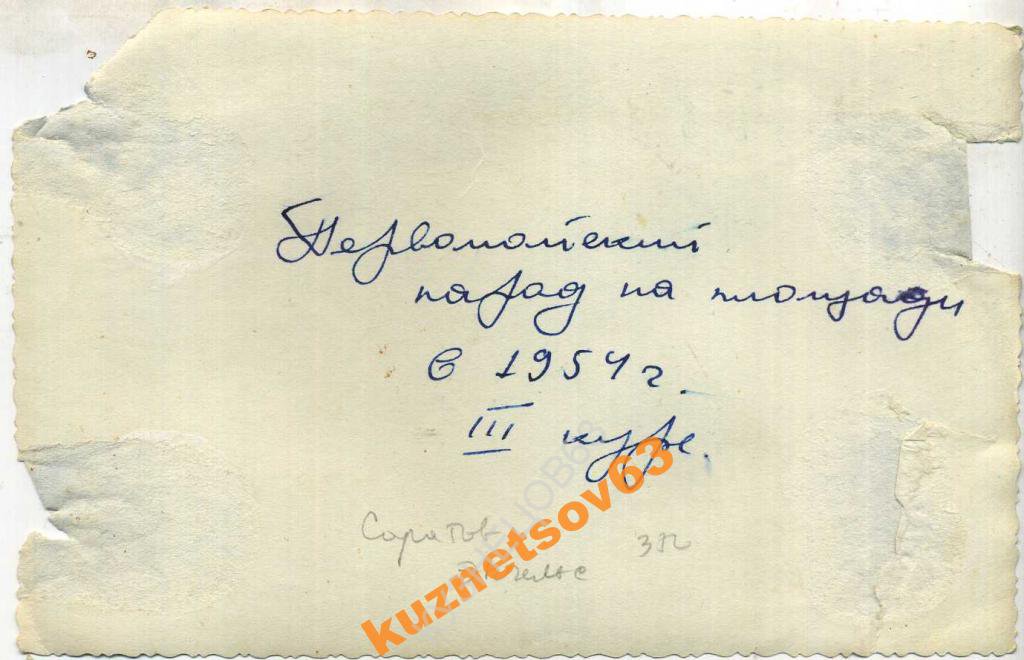 Первомайский
парад на площади
в 1954 г.
III курс.
Саратов
Энгельс
kuznetsov63